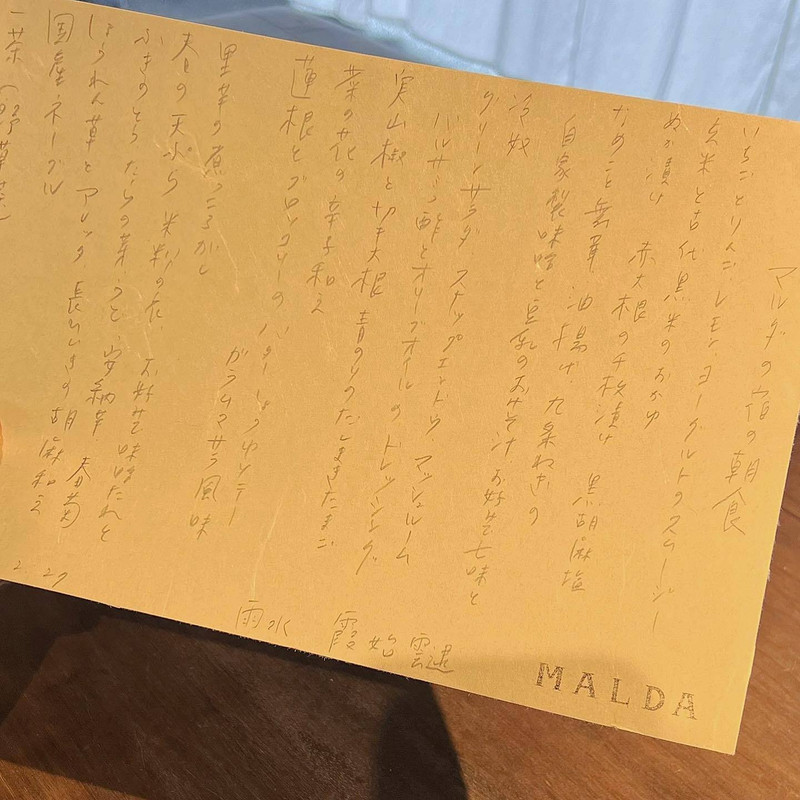 マルダの宿の朝食
いちごとりんご レモン ヨーグルトのスムージー
玄米と古代黒米のおかゆ 黒胡麻塩
ぬか漬け 赤大根の千枚漬け
なめこと 油揚げ 九条ねぎの
自家製味噌と豆乳のおみそ汁 お好きで七味と
冷奴
グリーンサラダ スナップエンドウ マッシュルーム
バルサミコ酢とオリーブオイルのドレッシング
実山椒と切干大根 青のりのだしまきたまご
菜の花の辛子和え
蓮根とブロッコリーのバターしょうゆソテー
ガラムマサラ風味
里芋の煮っころがし
春の天ぷら 米粉の衣 お好きで味噌だれと
ふきのとう たらの芽 うど 安納芋 春菊
ほうれん草と 長ひじきの胡麻和え
国産ネーブル
一茶
2.27
雨水
霞始靆
MALDA